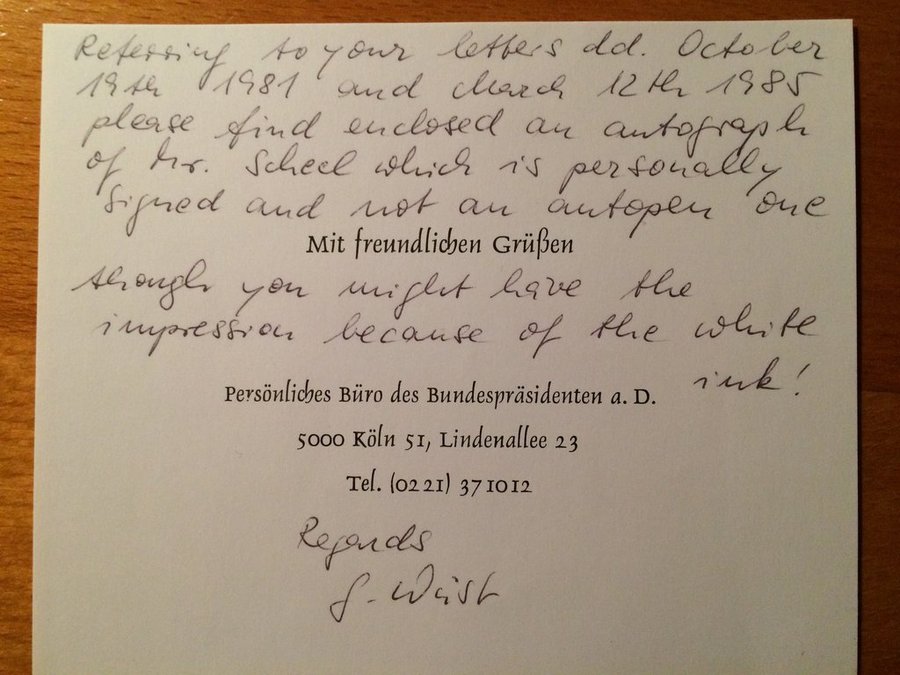 Referring to your letters dd. October
19th 1981 and March 12th 1985
please find enclosed an autograph
of Mr. Scheel which is personally
signed and not an autopen one
Mit freundlichen Grüßen
though you might have the
impression because of the white
ink!
Persönliches Büro des Bundespräsidenten a. D.
5000 Köln 51, Lindenallee 23
Tel. (0221) 371012
Regards
G. Wüst